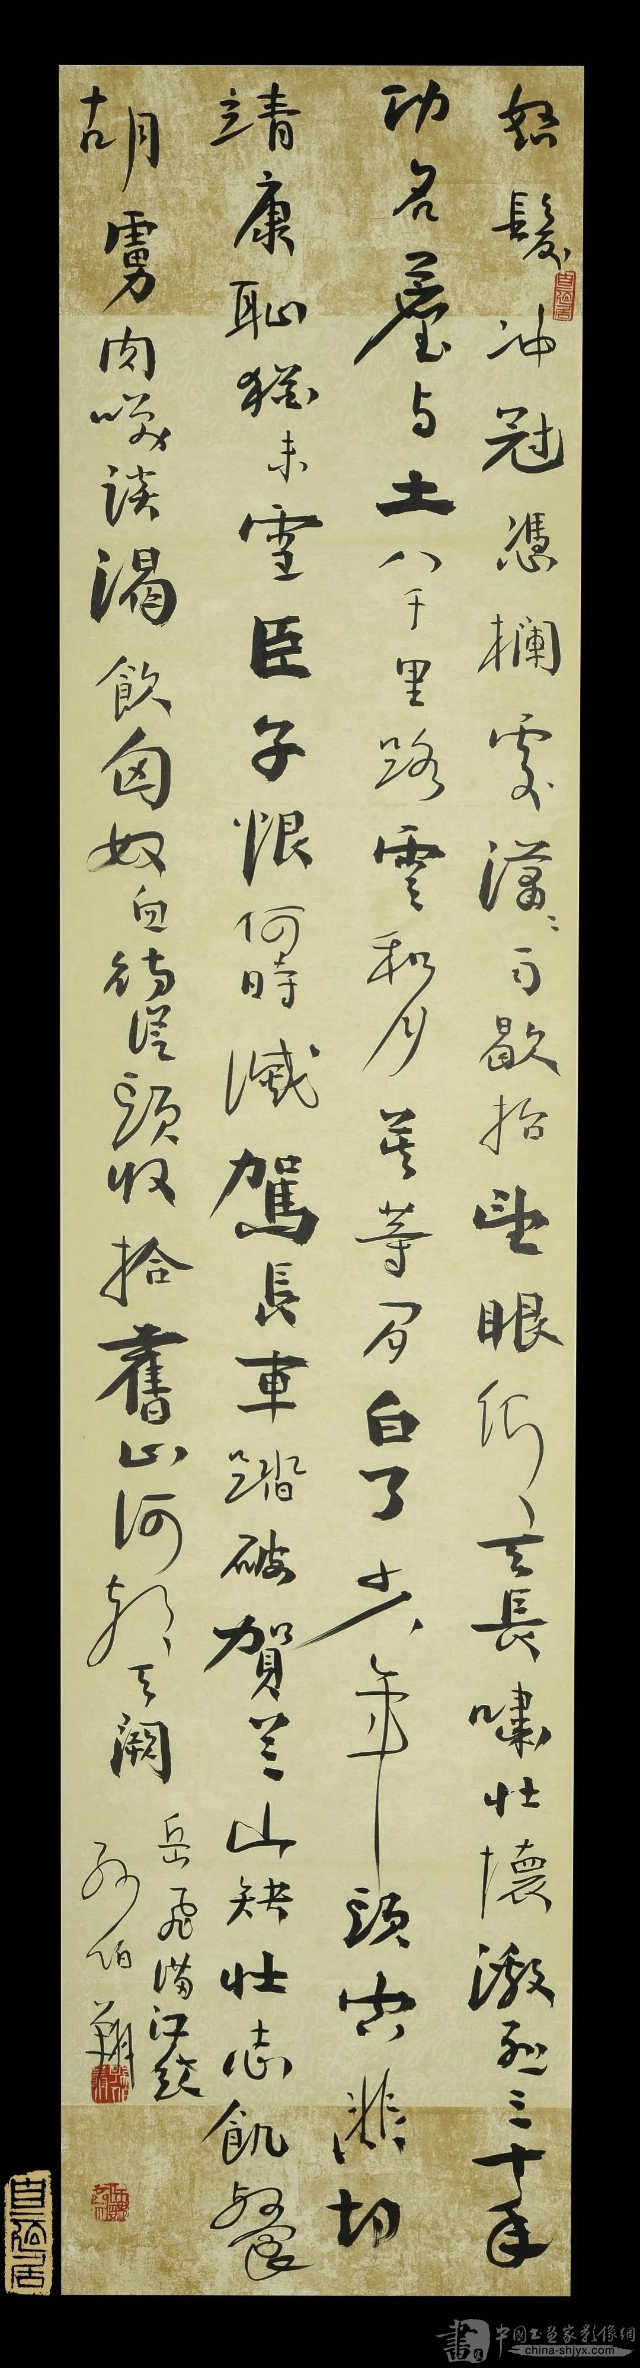 怒髮冲冠憑欄處瀟〻雨歇抬望眼仰天長嘯壯懷激烈三十年
功名塵与土八千里路雲和月莫等閒白了少年頭空悲切
靖康恥猶未雪臣子恨何時滅駕長車踏破賀蘭山缺壯志飢餐
胡虜肉咲談渴飲匈奴血待從頭收拾舊山河朝天闕
岳飛滿江紅
孙伯翔
中國书画家影像網
china-shjyx.com